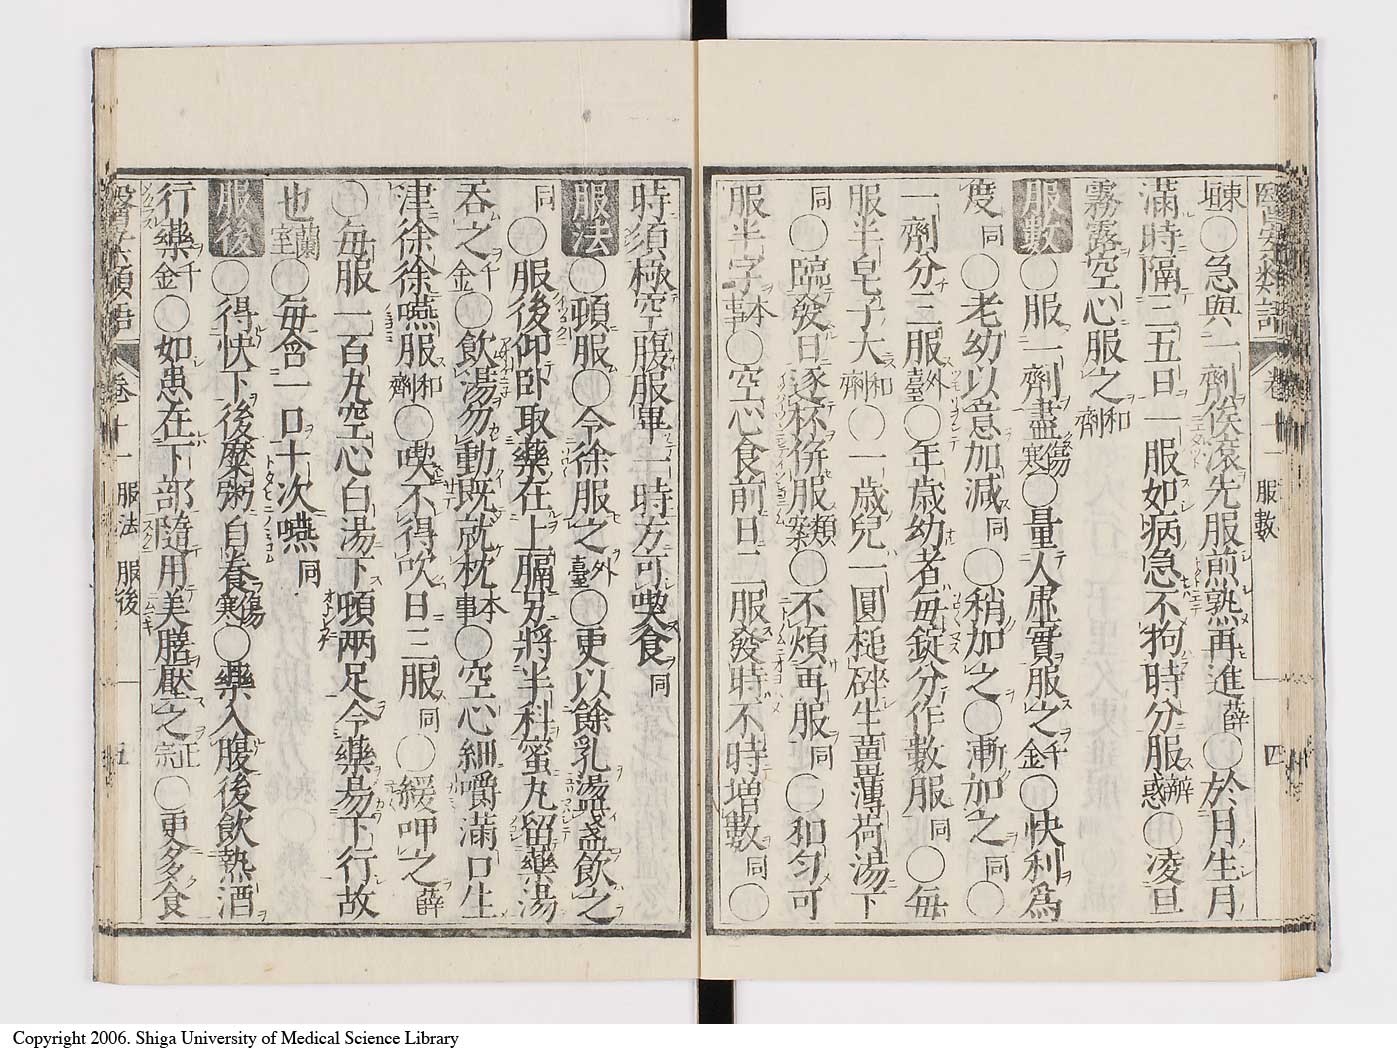 東垣〇急與一劑俟滾先服煎熟再進薛〇於月生月
滿時隔三五日一服如病急不拘時分服辨惑〇凌旦
霧露空心服之和劑
服數〇服一劑盡傷寒〇量人虛實服之千金〇快利爲
度同〇老幼以意加減同〇稍加之〇漸加之同〇
一劑分三服外臺〇年歲幼者每錠分作數服同〇每
服半皂子大和劑〇一歲兒一圓槌碎生薑薄荷湯下
同〇臨發日逐杯併服類案〇不煩再服同〇和勻可
服半字本事〇空心食前日二服發時不時增數同〇
醫學類語 卷十一 服數 四
時須極空腹服畢一時方可喫食同
服法〇頓服〇令徐服之外臺〇更以餘乳湯盪盞飲之
同〇服後仰臥取藥在上膈另將半料蜜丸留藥湯
吞之千金〇飲湯勿動既就枕本事〇空心細嚼滿口生
津徐徐嚥服和劑〇喫不得吹日三服同〇緩呷之薛
〇每服一百丸空心白湯下頓兩足令藥易下行故
也蘭室〇每含一口十次嚥同
服後〇得快下後糜粥自養傷寒〇藥入腹後飲熱酒
行藥千金〇如患在下部隨用美膳壓之正宗〇更多食
醫學類語 卷十一 服法 服後 五
Copyright 2006. Shiga University of Medical Science Library